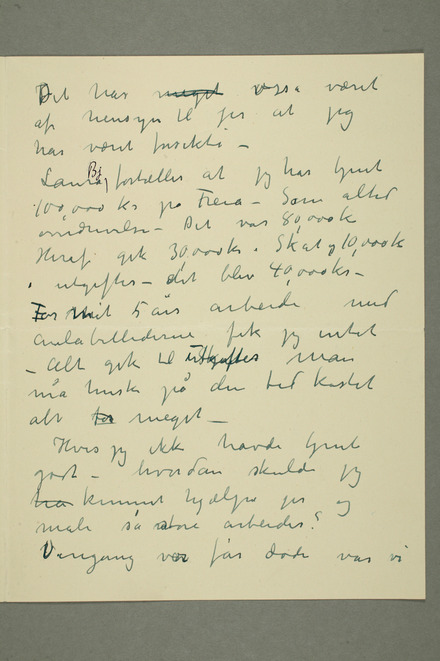 Det har meget også været
af hensyn til jer at jeg
har været forsiktig –
Laura Bj fortæller at jeg har tjent
100,000 kr på Freia – Som altid
overdrivelse – Det var 80,000 k
Heraf gik 30,000 k i Skat og 10,000 k
i utgifter – det blev 40,000 kr –
For mit 5 års arbeide med
aulabillederne fik jeg intet
– alt gik til utgifter man
må huske på den tid kostet
alt for meget –
Hvis jeg ikke havde tjent
godt – hvordan skulde jeg
ha kunnet hjælpe jer og
male så store arbeider?
Dengang var far døde var vi